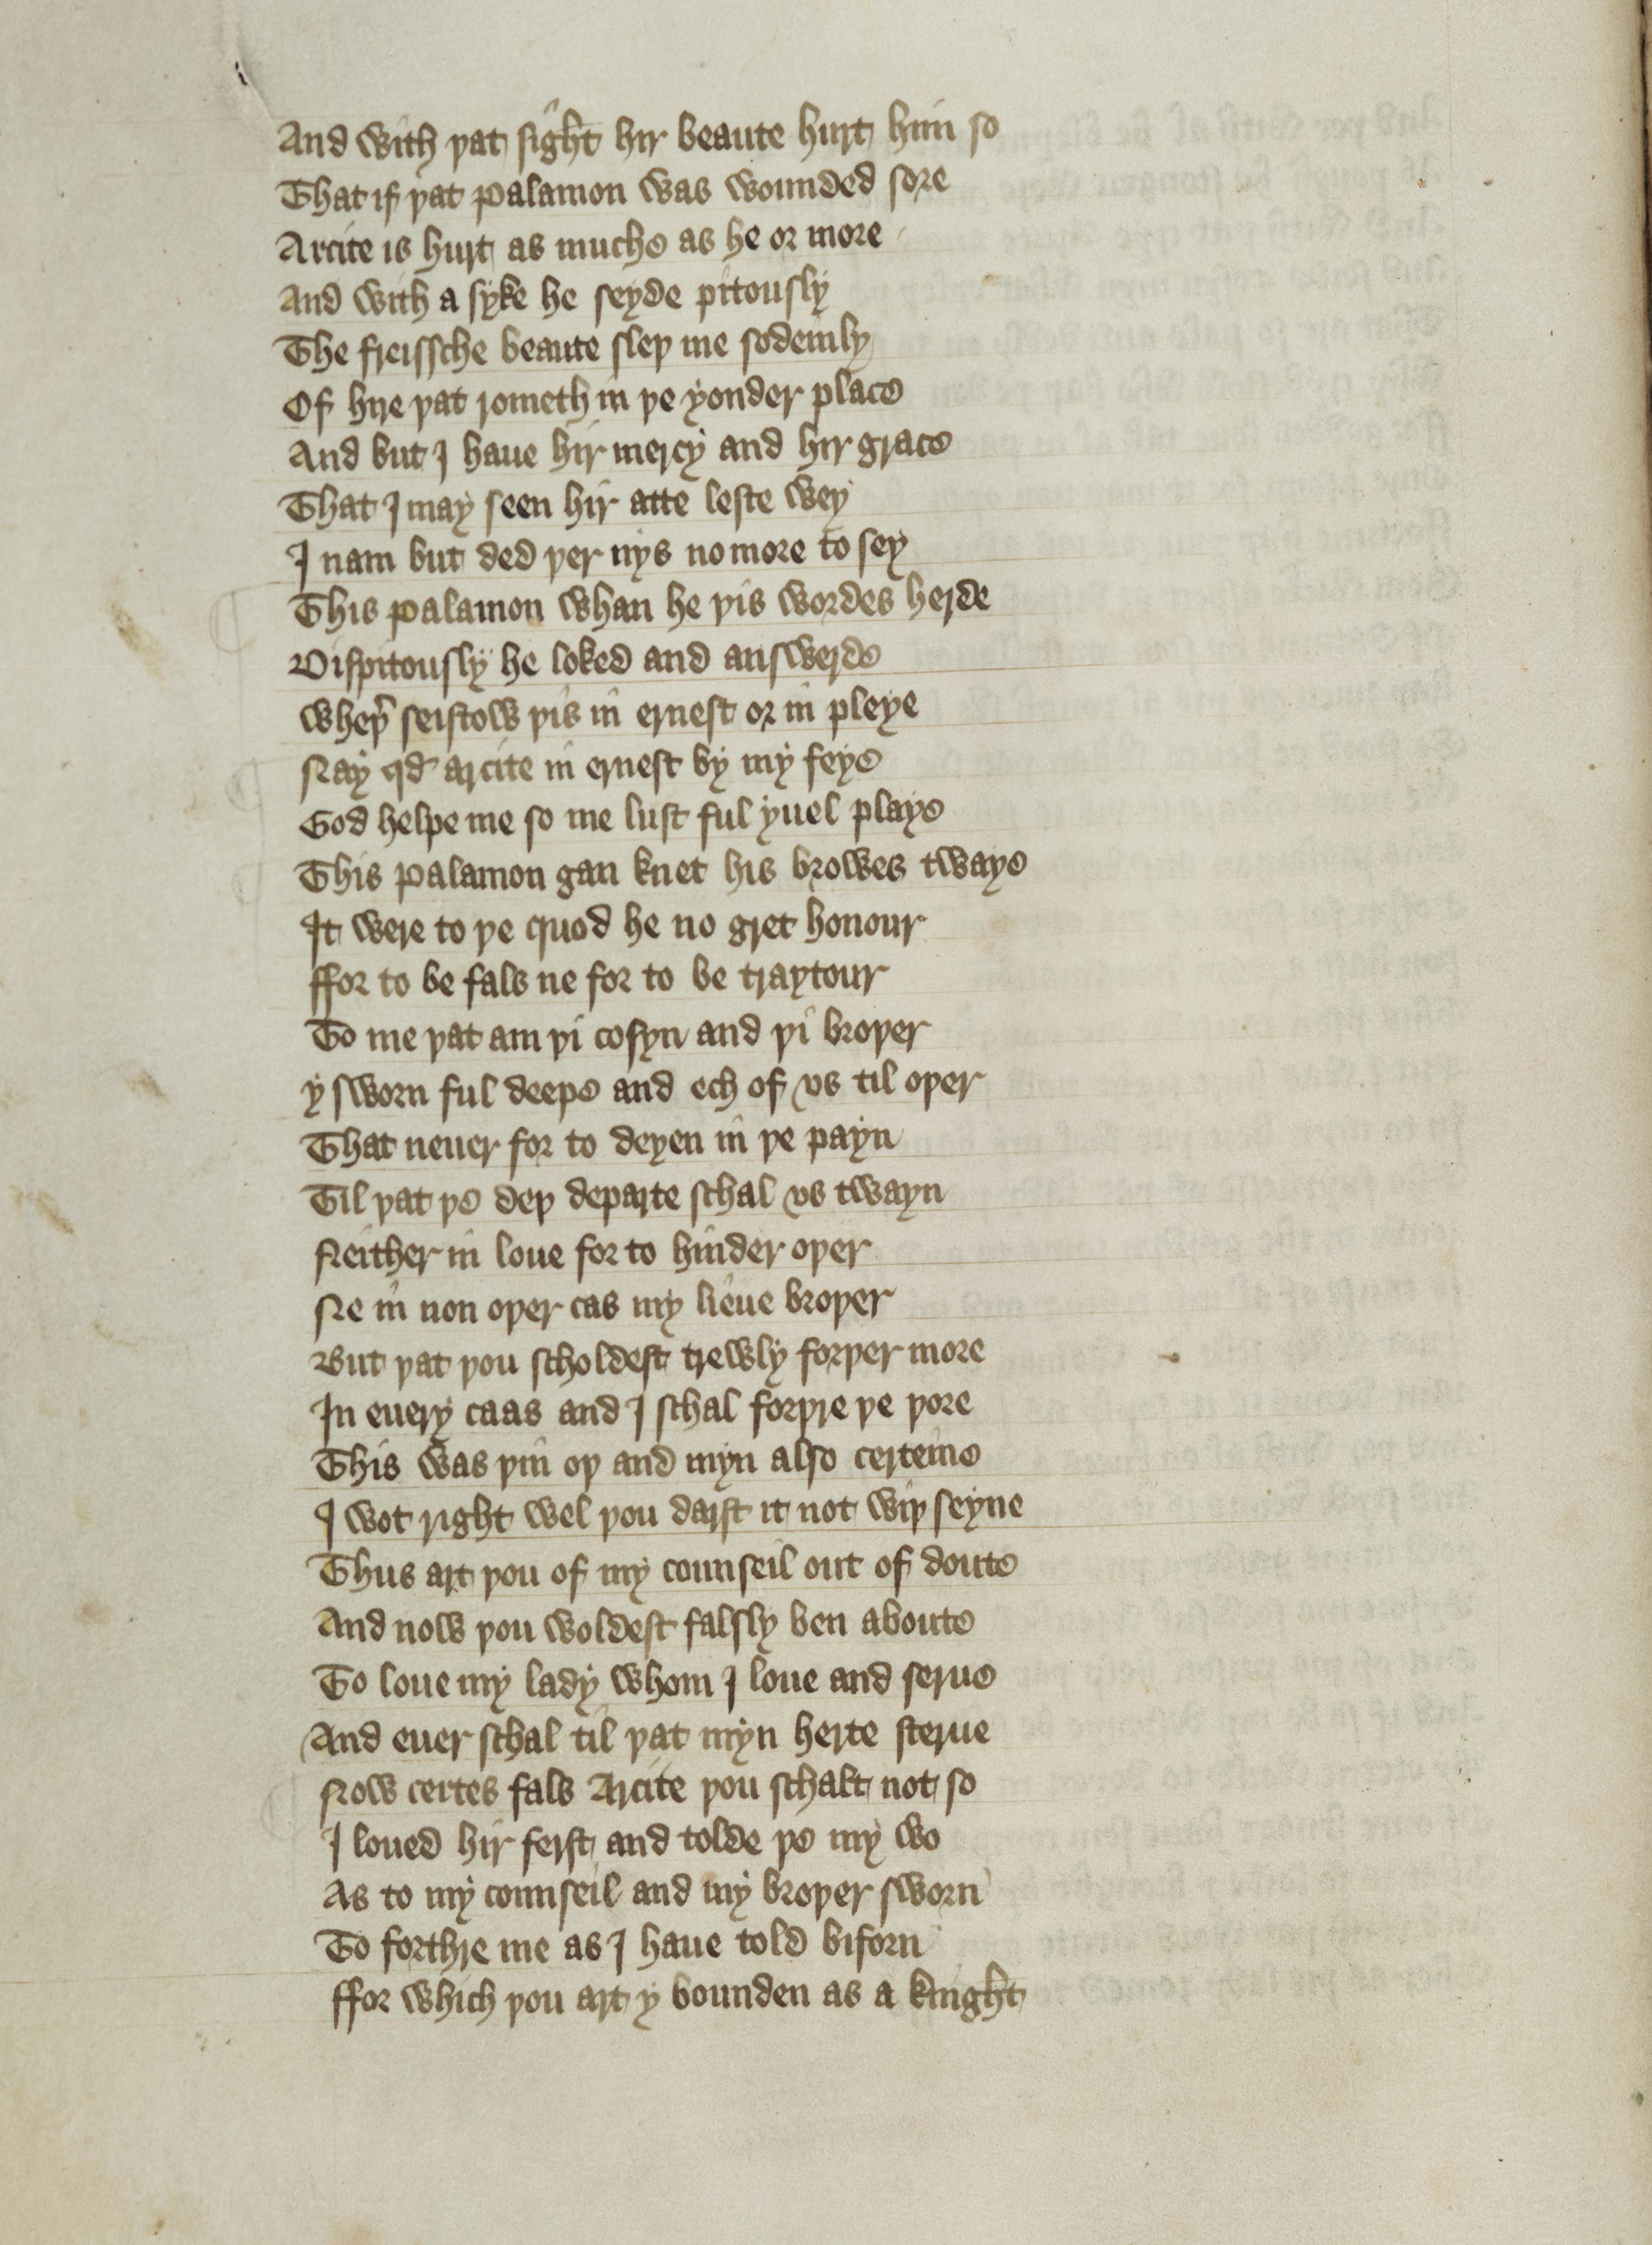 And with þat sight hir beaute hurt him so
That if þat Palamon was wounded sore
Arcite is hurt as muche as he or more
And with a syke he seyde pitously
The freissche beaute sleþ me sodeinly
Of hire þat rometh in þe yonder place
And but I haue hir mercy and hir grace
That I may seen hir atte leste wey
I nam but ded þer nys no more to sey
This Palamon whan he þis wordes herde
Dispitously he loked and answerde
Wheþer seistow þis in ernest or in pleye
Nay qd arcite in ernest by my feye
God helpe me so me lust ful yuel playe
This Palamon gan knet his browes twaye
It were to þe quod he no gret honour
ffor to be fals ne for to be traytour
To me þat am þi cosyn and þi broþer
y sworn ful deepe and ech of vs til oþer
That neuer for to deyen in þe payn
Til þat þe deþ departe schal vs twayn
Neither in loue for to hinder oþer
Ne in non oþer cas my lieue broþer
But þat þou scholdest trewly forþer more
In euery caas and I schal forþre þe þore
This was þin oþ and myn also certeine
I wot right wel þou darst it not wiþ seyne
Thus art þou of my counseil out of doute
And now þou woldest falsly ben aboute
To loue my lady whom I loue and serue
And euer schal til þat myn herte sterue
Now certes fals Arcite þou schalt not so
I loued hir ferst and tolde þe my wo
As to my counseil and my broþer sworn
To forthre me as I haue told biforn
ffor which þou art y bounden as a knight